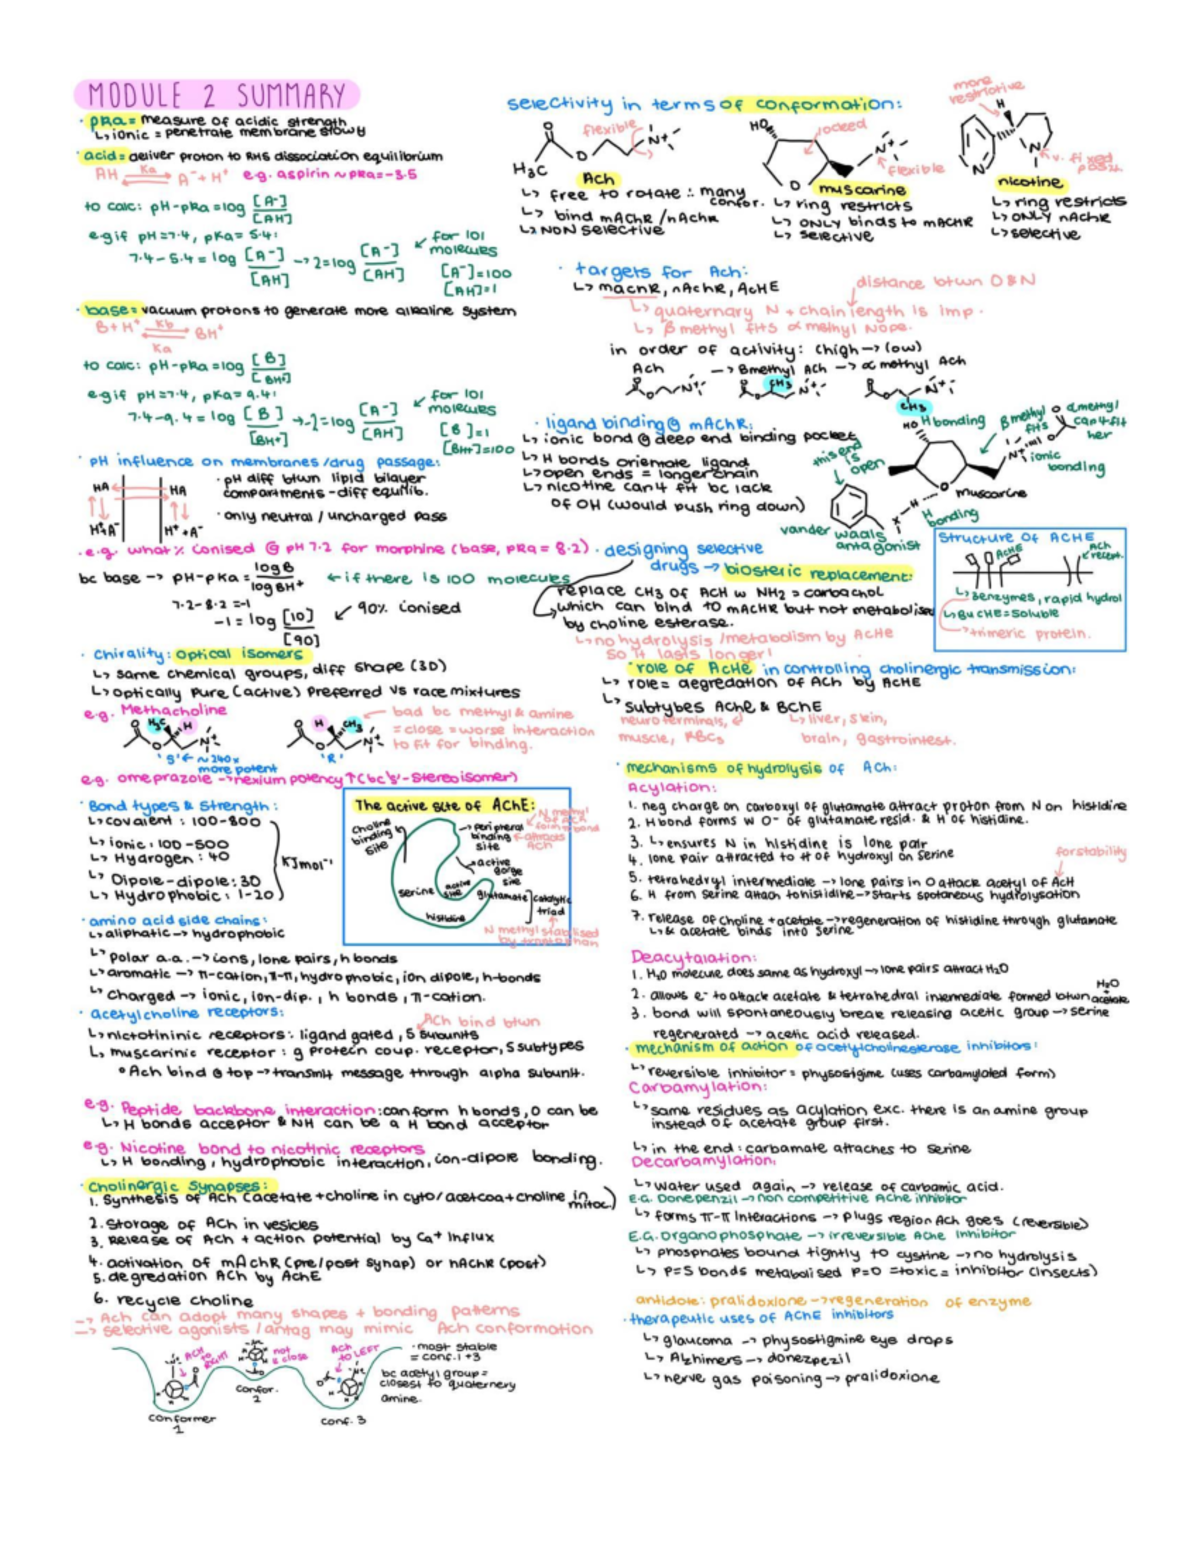 MODULE 2 SUMMARY
· pka = measure of acidic strength
↳ ionic = penetrate membrane slowly
· acid = deliver proton to RHS dissociation equilibrium
AH ⇌ A⁻ + H⁺ e.g. aspirin ~ pka = -3.5
Ka
to calc: pH-pka = log [A⁻]/[AH]
e.g if pH = 7.4, pKa = 5.4:
7.4 - 5.4 = log [A⁻]/[AH] → 2 = log [A⁻]/[AH]
for 101 molecules
[A⁻] = 100
[AH] = 1
· base = vacuum protons to generate more alkaline system
B + H⁺ ⇌ BH⁺
Kb
Ka
to calc: pH-pka = log [B]/[BH⁺]
e.g if pH = 7.4, pKa = 9.4:
7.4 - 9.4 = log [B]/[BH⁺] → -2 = log [A⁻]/[AH]
for 101 molecules
[B] = 1
[BH+] = 100
· pH influence on membranes/drug passage:
HA HA
H⁺A⁻ H⁺ + A⁻
· pH diff btwn lipid bilayer
compartments - diff equilib.
· only neutral / uncharged pass
· e.g. what % ionised @ pH 7.2 for morphine (base, pka = 8.2)
bc base → pH-pka = logB/logBH⁺ ← if there is 100 molecules
7.2 - 8.2 = -1
-1 = log [10]/[90] ↙ 90% ionised
· Chirality: optical isomers
↳ same chemical groups, diff shape (3D)
↳ optically pure (active) preferred vs race mixtures
e.g. Methacholine
H₃C H
H CH₃
'S' ← ~240x
more potent
'R'
bad bc methyl & amine
= close = worse interaction
to fit for binding.
e.g. omeprazole → nexium potency ↑ (bc 's' - stereoisomer)
· Bond types & Strength:
↳ covalent : 100-800
↳ ionic : 100-500
↳ Hydrogen : 40
↳ Dipole-dipole : 30
↳ Hydrophobic : 1-20
KJmol⁻¹
The active site of AChE:
choline
binding
site
→ peripheral
binding
site
attracts
ACh
active
gorge
site
serine
active
site
glutamate
catalytic
triad
histidine
N methyl stabilised
· amino acid side chains:
↳ aliphatic → hydrophobic
↳ polar a.a. → ions, lone pairs, h bonds
↳ aromatic → π-cation, π-π, hydrophobic, ion dipole, h-bonds
↳ charged → ionic, ion-dip., h bonds, π-cation.
· acetylcholine receptors:
ACh bind btwn
↳ nictotininic receptors: ligand gated, 5 subunits
↳ muscarinic receptor : g protein coup. receptor, 5 subtypes
• Ach bind @ top → transmit message through alpha subunit.
e.g. Peptide backbone interaction: can form h bonds, O can be
↳ H bonds acceptor & NH can be a H bond acceptor
e.g. Nicotine bond to nicotinic receptors
↳ H bonding, hydrophobic interaction, ion-dipole bonding.
· Cholinergic Synapses:
1. Synthesis of ACh (acetate + choline in cyto/acetcoa + choline in mitoc.)
2. Storage of ACh in vesicles
3. Release of ACh + action potential by Ca⁺ influx
4. activation of mAchR (pre/post synap) or nAChR (post)
5. degredation ACh by AChE
6. recycle choline
→ Ach can adopt many shapes + bonding patterns
→ selective agonists / antag may mimic Ach conformation
ACH to RIGHT
not close
Ach to LEFT
conformer
1
confor.
2
conf. 3
· most stable
= conf. 1 + 3
bc acetyl group =
closest to quaternery
amine.
selectivity in terms of conformation:
flexible
H₃C
O
N⁺
Ach
↳ free to rotate ∴ many
confor.
↳ bind mAChR / nAchR
↳ NON selective
HO
locked
flexible
N⁺
O
muscarine
↳ ring restricts
↳ ONLY binds to mACHR
↳ selective
more
restrictive
H
N
N
v. fixed
nicotine
↳ ring restricts
↳ ONLY nAChR
↳ selective
· targets for Ach:
↳ machR, nAchR, AcHE
distance btwn O & N
↳ quaternary N + chain length is imp.
↳ β methyl fits α methyl NOPE.
in order of activity: (high → low)
Ach → Bmethyl ACh → α methyl Ach
CH₃
CH₃
· ligand binding @ mAChR:
↳ ionic bond @ deep end binding pocket
↳ H bonds orientate ligand
↳ open ends = longer chain
↳ nicotine can't fit bc lack
of OH (would push ring down)
HO H bonding
β methyl
fits
α methyl
can't fit
her
ionic
bonding
N⁺
this end
is
open
O
muscarine
H
bonding
vander waals
antagonist
· designing selective
drugs → biosteric replacement:
replace CH₃ of ACH w NH₂ = carbachol
which can bind to mACHR but not metabolised
by choline esterase.
↳ no hydrolysis / metabolism by AcHe
so it lasts longer!
Structure of ACHE
AcHE
ACh
recept.
↳ 3enzymes, rapid hydrol
↳ BuCHE = soluble
→ trimeric protein.
· role of AcHE in controlling cholinergic transmission:
↳ role = degredation of ACh by AcHE
↳ subtybes AChe & BChE
neuroterminals,
muscle, RBCs
↳ liver, skin,
brain, gastrointest.
· mechanisms of hydrolysis of ACh:
Acylation:
1. neg charge on carboxyl of glutamate attract proton from N on histidine
2. H bond forms w O⁻ of glutamate resid. & H of histidine.
3. ↳ ensures N in histidine is lone pair
4. lone pair attracted to H of hydroxyl on serine
for stability
5. tetrahedryl intermediate → lone pairs in O attack acetyl of AcH
6. H from serine attach to histidine → starts spotaneous hydrolysation
7. release of choline + acetate → regeneration of histidine through glutamate
↳ & acetate binds into serine
Deacytalation:
1. H₂O molecule does same as hydroxyl → lone pairs attract H₂O
2. allows e⁻ to attack acetate & tetrahedral intermediate formed btwn H₂O + acetate
3. bond will spontaneously break releasing acetic group → serine
regenerated → acetic acid released.
· mechanism of action of acetylcholinesterase inhibitors:
↳ reversible inhibitor = physostigime (uses carbamylated form)
Carbamylation:
↳ same residues as acylation exc. there is an amine group
instead of acetate group first.
↳ in the end : carbamate attaches to serine
Decarbamylation:
↳ water used again → release of carbamic acid.
E.G. Donepenzil → non competitive AChe inhibitor
↳ forms π-π interactions → plugs region Ach goes (reversible)
E.G. organophosphate → irreversible AChe inhibitor
↳ phosphates bound tightly to cystine → no hydrolysis
↳ P=S bonds metabolised P=O = toxic = inhibitor (insects)
antidote: pralidoxione → regeneration of enzyme
· therapeutic uses of AChE inhibitors
↳ glaucoma → physostigmine eye drops
↳ Alzhimers → donezpezil
↳ nerve gas poisoning → pralidoxione